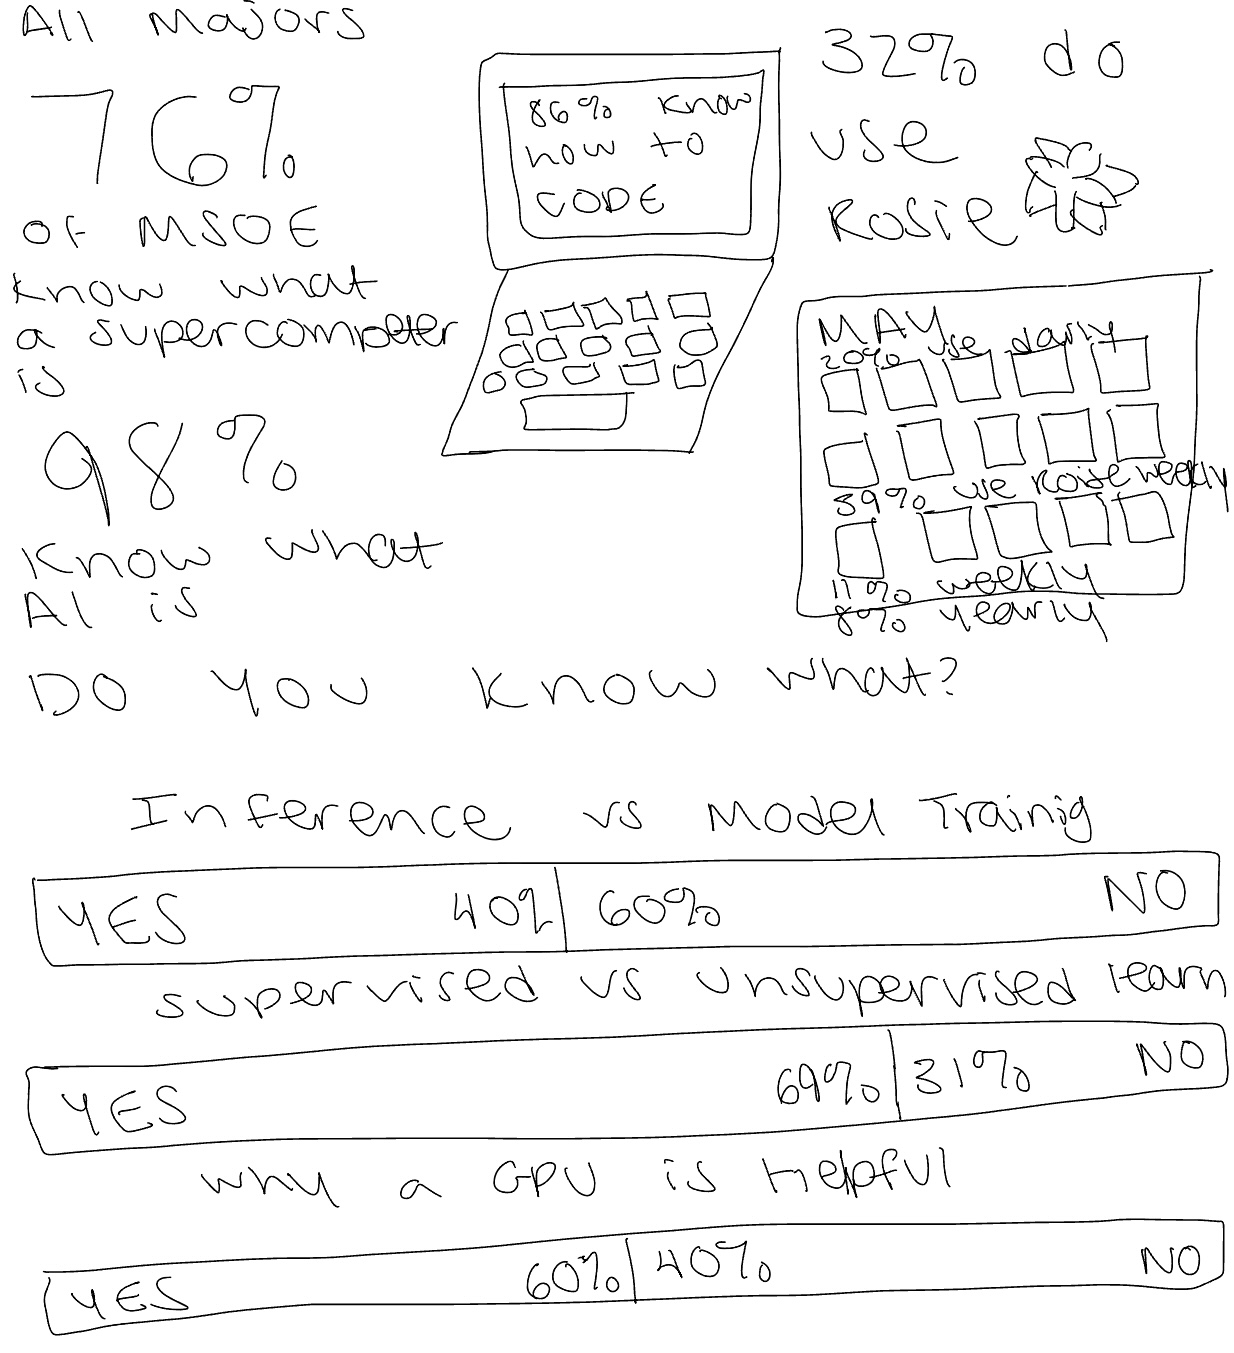 All Majors
76%
of MSOE
know what
a supercomputer
is
98%
know what
AI is
86% know
how to
CODE
32% do
use
Rosie
MAY
20% use daily
39% use Rosie weekly
11% weekly
8% yearly
DO YOU know what?
Inference vs Model Trainig
YES 40% 60% NO
supervised vs unsupervised learn
YES 69% 31% NO
why a GPU is Helpful
YES 60% 40% NO